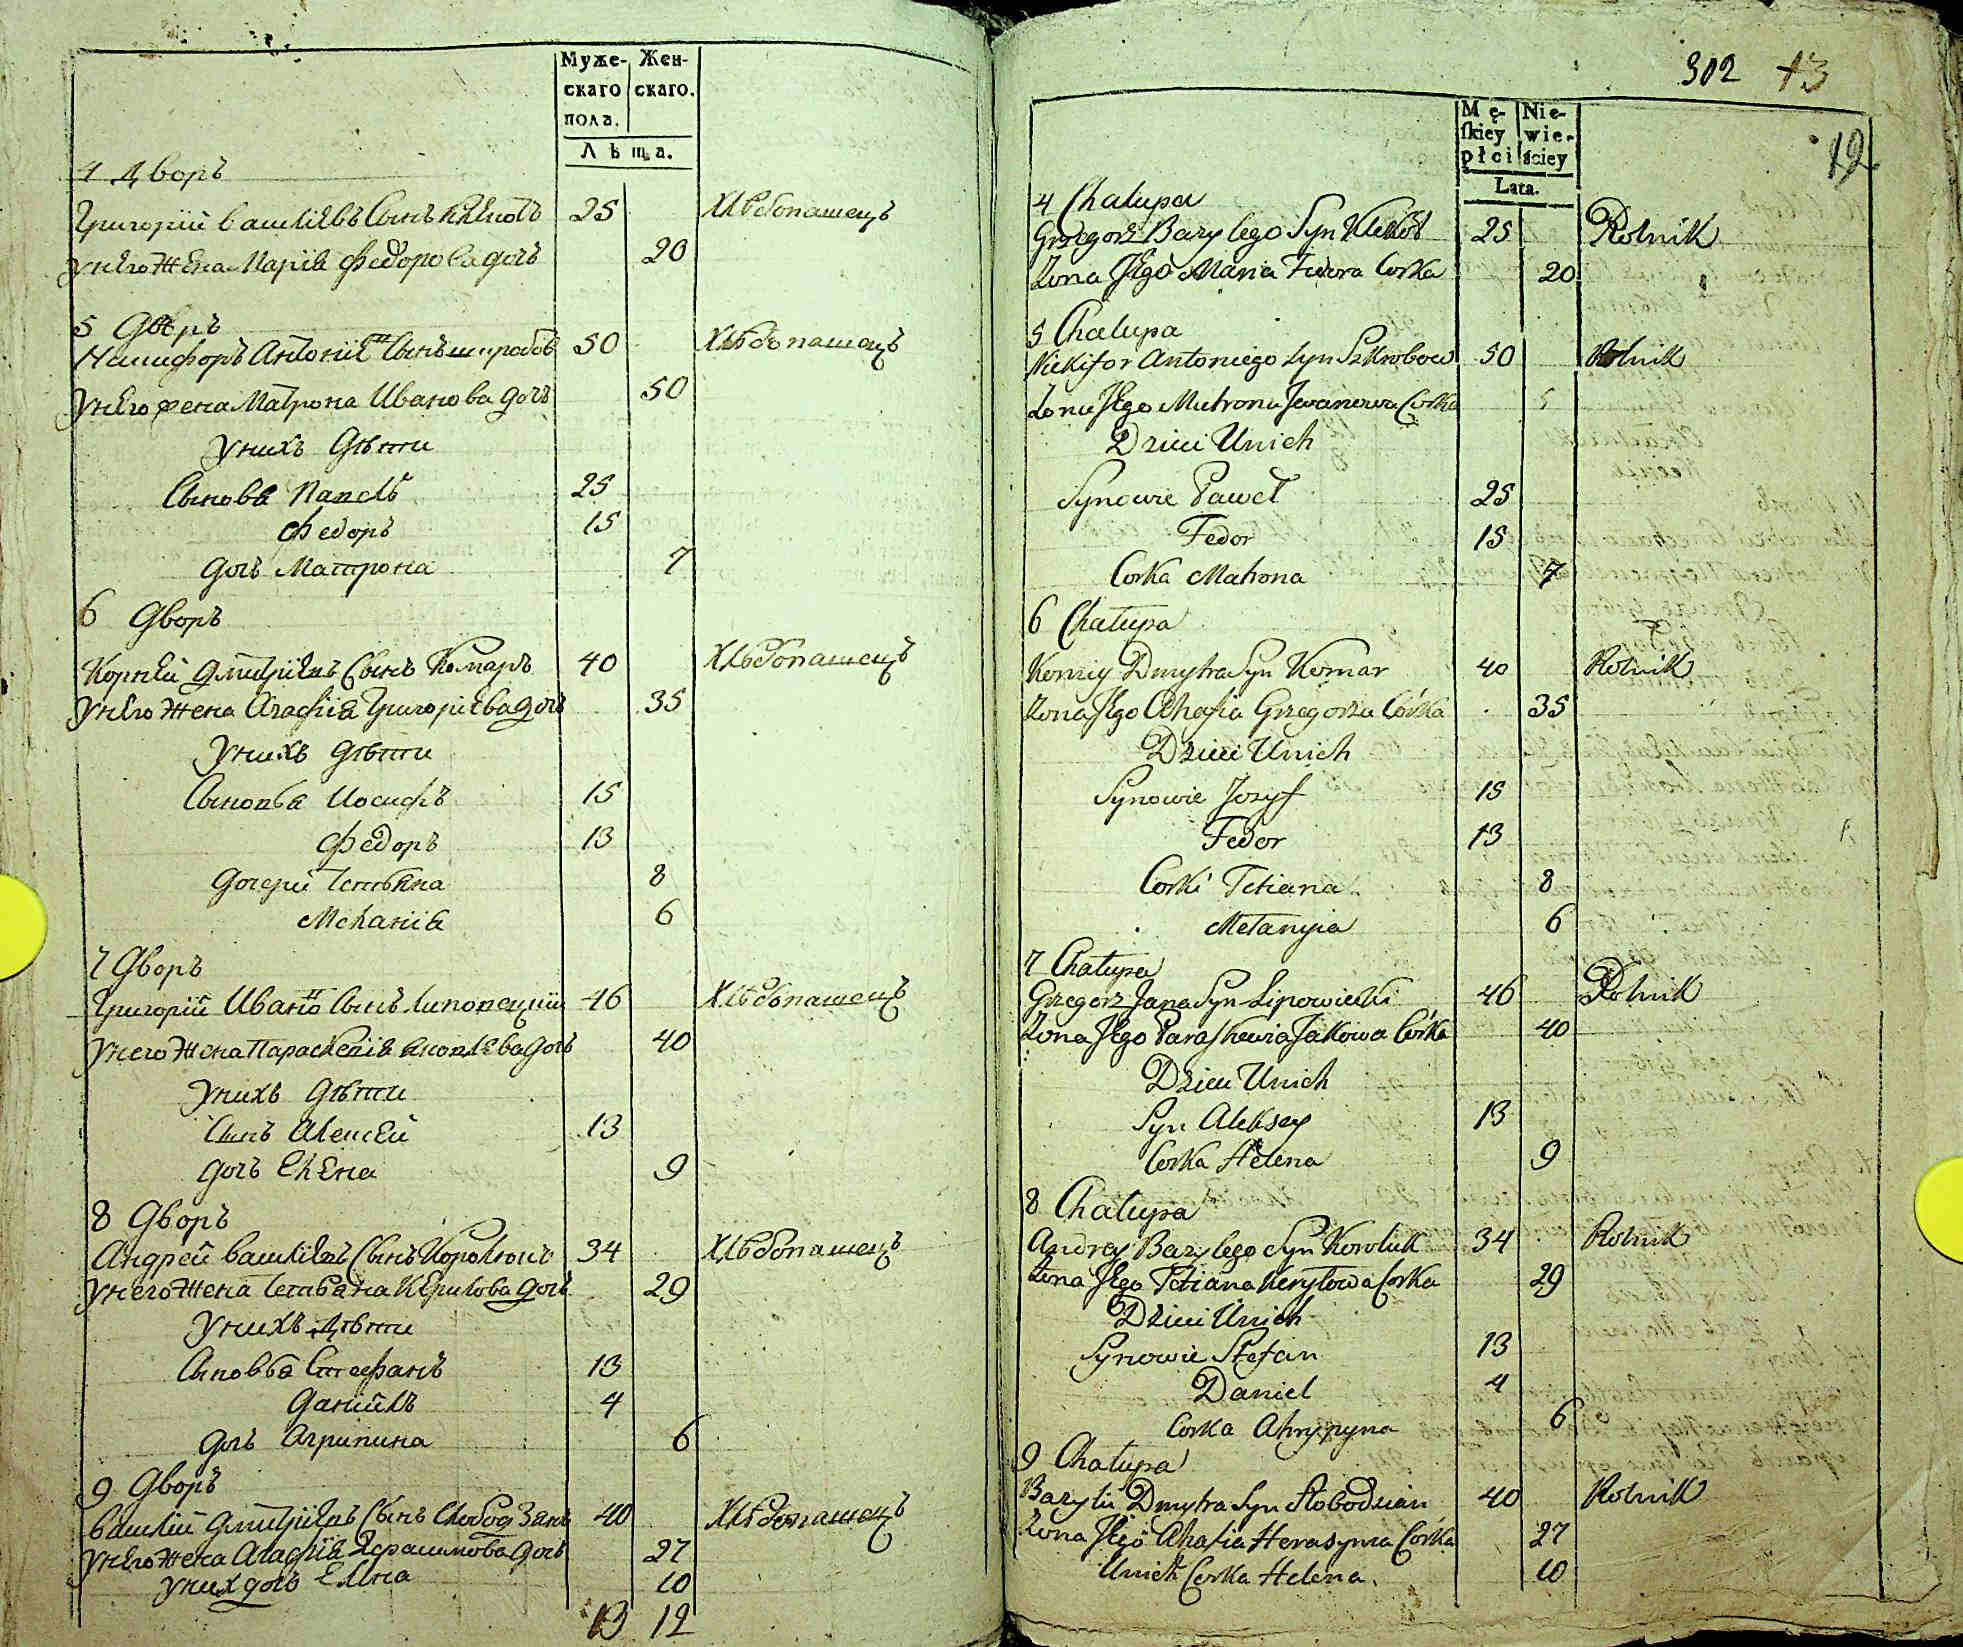 Муже- Жен-
скаго скаго.
пола.
Лѣта.
4 Дворъ
Григорій Василіевъ Сынъ 25 Хлѣбопашецъ
унего жена Марія Федорова дочь 20
5 Дворъ
Никифоръ Антоніи Сынъ 50 Хлѣбопашецъ
унего жена Матрона Иванова дочь 50
Унихъ Дѣти
Сыновя Павелъ 25
Федоръ 15
Дочь Матрона 7
6 Дворъ
Корнѣй Дмитріевъ Сынъ Комаръ 40 Хлѣбопашецъ
унего Жена Агафія Григоріева дочь 35
Унихъ Дѣти
Сыновья Иосифъ 15
Федоръ 13
Дочери Тетяна 8
Меланія 6
7 Дворъ
Григорій Ивано Сынъ Липовецкій 46 Хлѣбопашецъ
унего Жена Параскевія Яковлева дочь 40
Унихъ Дѣти
Сынъ Алексѣй 13
Дочь Елена 9
8 Дворъ
Андрей Василіевъ Сынъ Королюкъ 34 Хлѣбопашецъ
унего Жена Тетяна Керилова дочь 29
Унихъ Дѣти
Сыновья Стефанъ 13
Данійлъ 4
Дочь Агрипина 6
9 Дворъ
Василій Дмитріевъ Сынъ Слободзянъ 40 Хлѣбопашецъ
унего жена Агафія Герасимова дочь 27
унихъ дочь Елена 10
13 12
302 13
12
Mę- Nie-
skiey wie-
płci sciey
Lata.
4 Chalupa
Grzegorz Bazylego Syn 25 Rolnik
Zona Jego Maria Fedora Corka 20
5 Chalupa
Nickifor Antoniego Syn Szkrobow 50 Rolnik
Zona Jego Matrona Jwanowa Corka 5
Dzieci Unich
Synowie Paweł 25
Fedor 15
Corka Matrona 7
6 Chałupa
Korniey Dmytra Syn Komar 40 Rolnik
Zona Jego Ahafia Grzegorza Córka 35
Dzieci Unich
Synowie Jozyf 15
Fedor 13
Corki Tetiana 8
Metanyia 6
7 Chałupa
Grzegorz Jana Syn Lipowiecki 46 Rolnik
Zona Jego Paraskewia Jakowa Córka 40
Dzieci Unich
Syn Aleksey 13
Corka Helena 9
8 Chałupa
Andrey Bazylego Syn Koroluk 34 Rolnik
Zona Jego Tetiana Keryłowa Corka 29
Dzieci Unich
Synowie Stefan 13
Daniel 4
Corka Ahrypyna 6
9 Chałupa
Bazyli Dmytra Syn Słobodzian 40 Rolnik
Zona Jego Ahafia Herasyma Córka 27
Unich Corka Helena 10